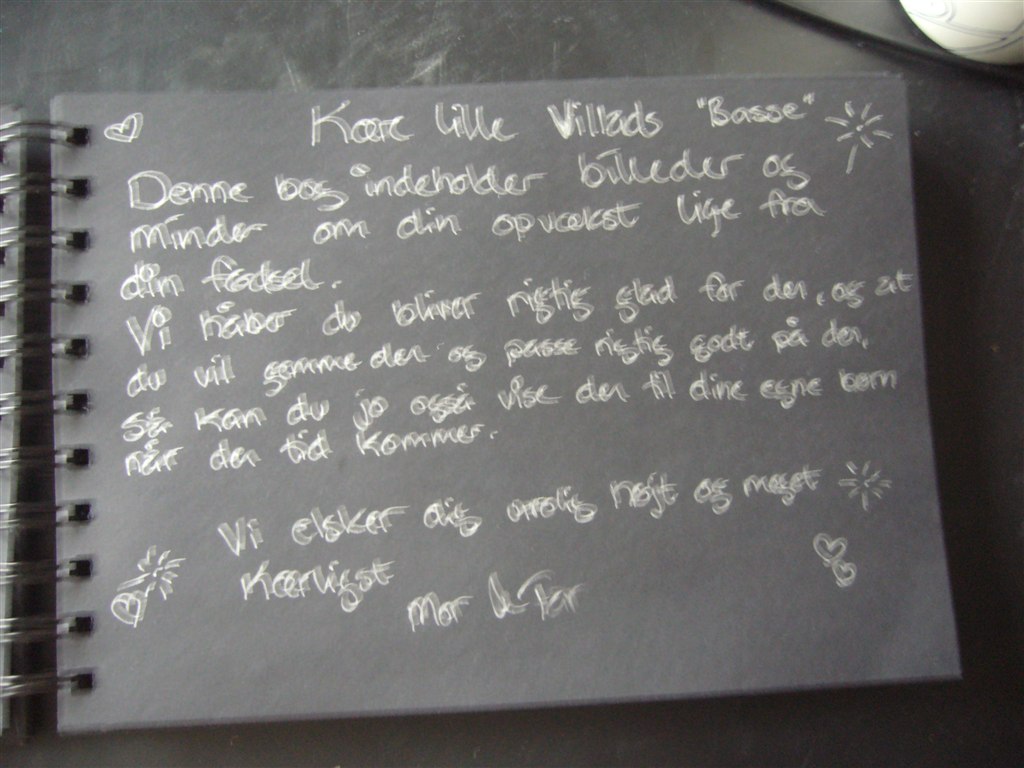 Kære lille Villads "Basse"
Denne bog indeholder billeder og
minder om din opvækst lige fra
din fødsel.
Vi håber du bliver rigtig glad for den, og at
du vil gemme den og passe rigtig godt på den,
så kan du jo også vise den til dine egne børn
når den tid kommer.
Vi elsker dig utrolig højt og meget
Kærligst
Mor & Far